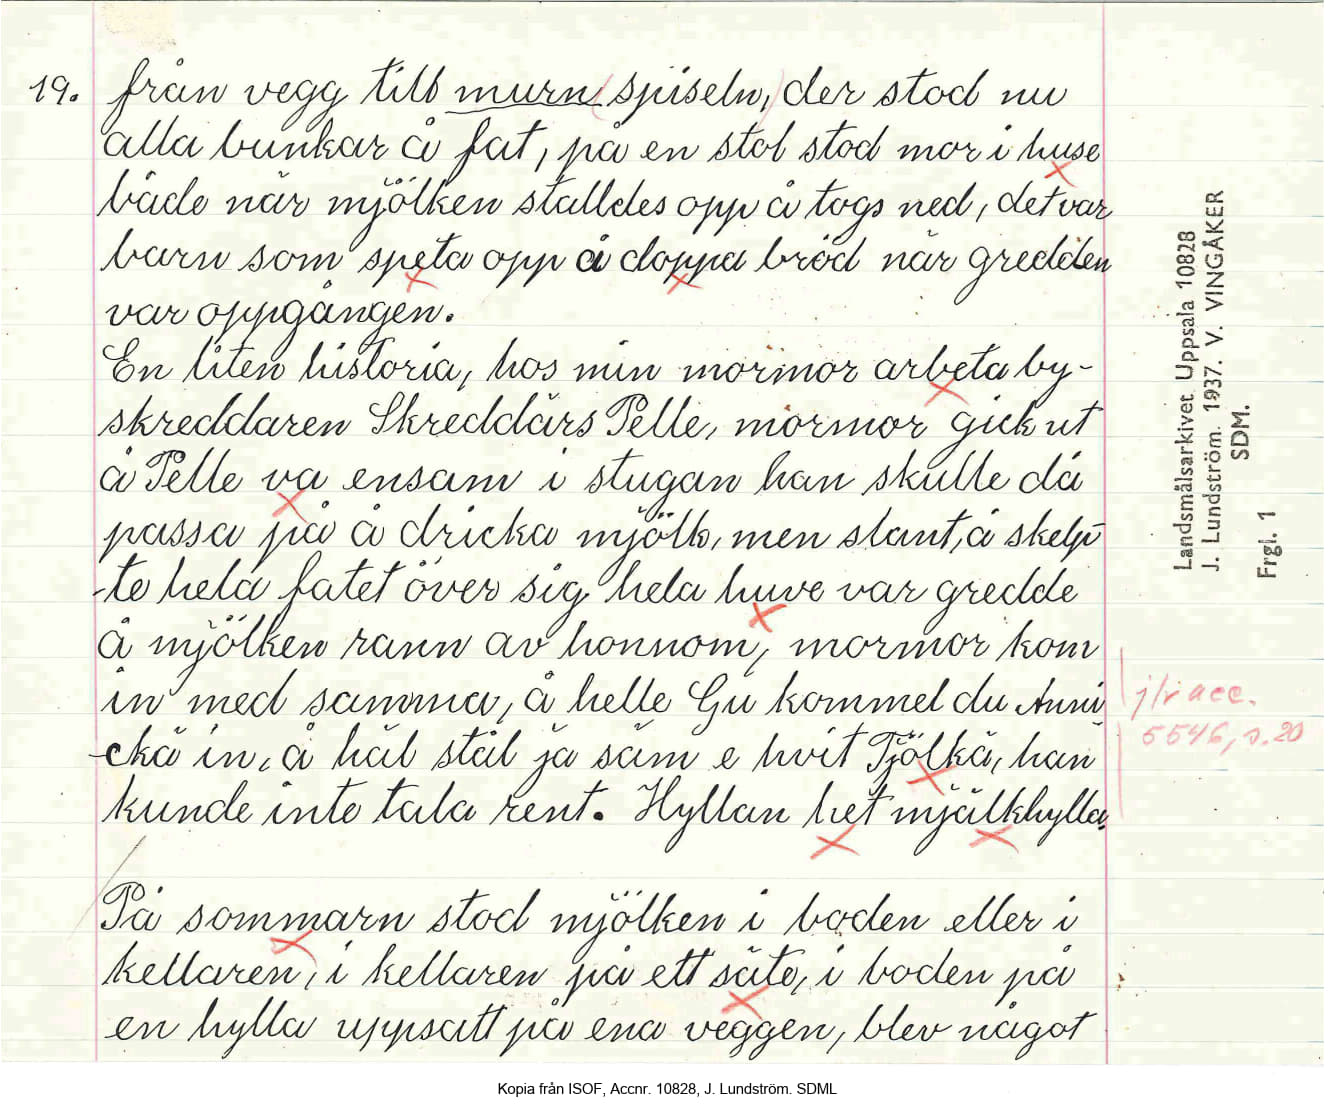 19. från vegg till murn (spiseln,) der stod nu
alla bunkar å fat, på en stol stod mor i huse
både när mjölken stalldes opp å togs ned, det var
barn som speta opp å doppa bröd när gredden
var oppgången.
En liten historia, hos min mormor arbeta by-
skreddaren Skreddärs Pelle, mormor gick ut
å Pelle va ensam i stugan han skulle då
passa på å dricka mjölk, men slant, å skelp-
-te hela fatet över sig hela huve var gredde
å mjölken rann av honnom, mormor kom
in med samma, å helle Gu kommel du Anni
-ckä in, å häl stål ja säm e hvit Tjölkä, han
kunde inte tala rent. Hyllan het mjälkhylla,
På sommarn stod mjölken i boden eller i
kellaren, i kellaren på ett säte, i boden på
en hylla uppsatt på ena veggen, blev något
j/r acc.
5546, s. 20
Landsmålsarkivet Uppsala 10828
J. Lundström. 1937. V. VINGÅKER
SDM.
Frgl. 1
Kopia från ISOF, Accnr. 10828, J. Lundström. SDML